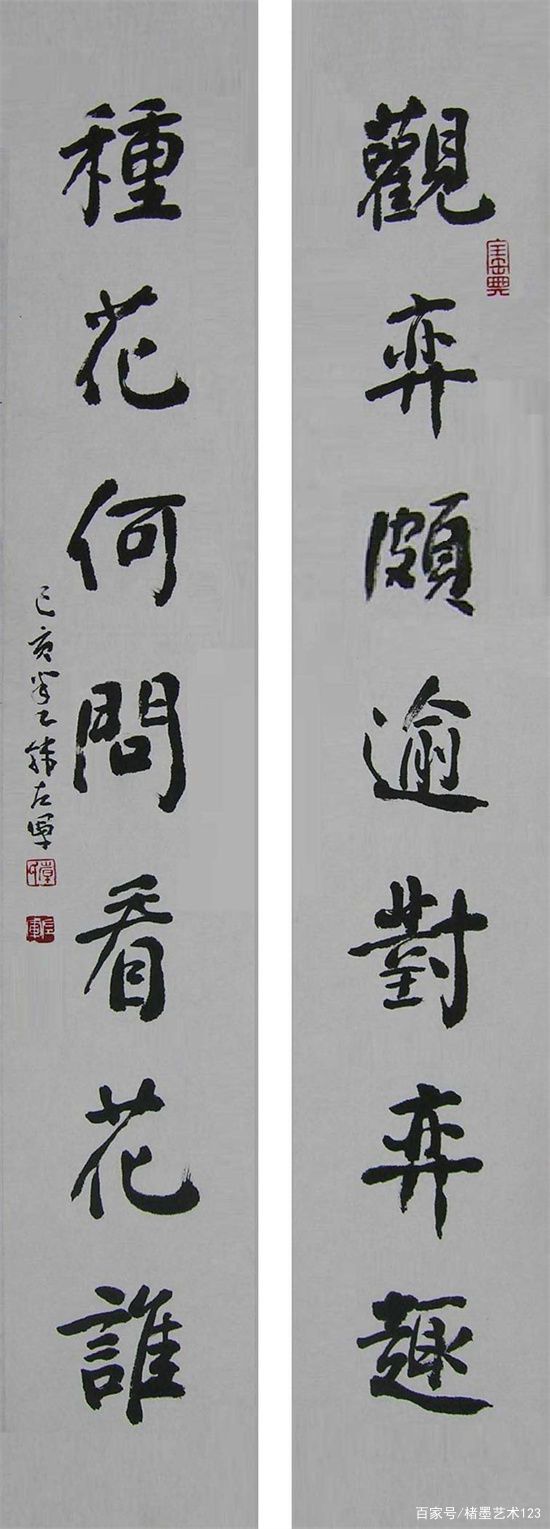 觀弈頗逾對弈趣
種花何問看花誰
己亥
左軍
百家号/楮墨艺术123